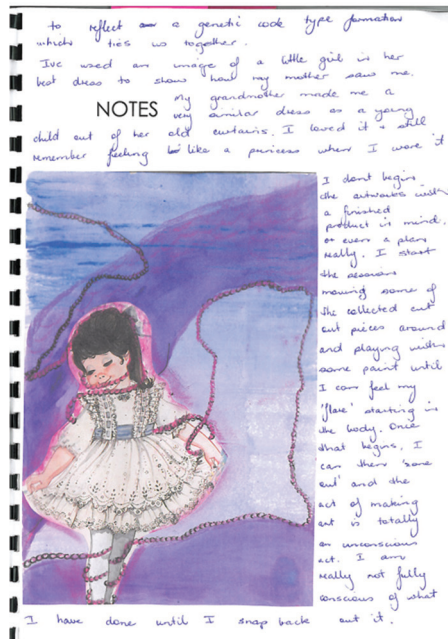 to reflect a genetic code type formation
which ties us together.
Ive used an image of a little girl in her
best dress to show how my mother saw me.
NOTES
My grandmother made me a
very similar dress as a young
child out of her old curtains. I loved it + still
remember feeling like a princess when I wore it
I dont begin
the artworks with
a finished
product in mind.
or even a plan
really. I start
the sessions
moving some of
the collected cut
out pieces around
and playing with
some paint until
I can feel my
'flare' starting in
the body. Once
that begins, I
can then 'zone
out' and the
act of making
art is totally
an unconscious
act. I am
really not fully
conscious of what
I have done until I snap back out it.